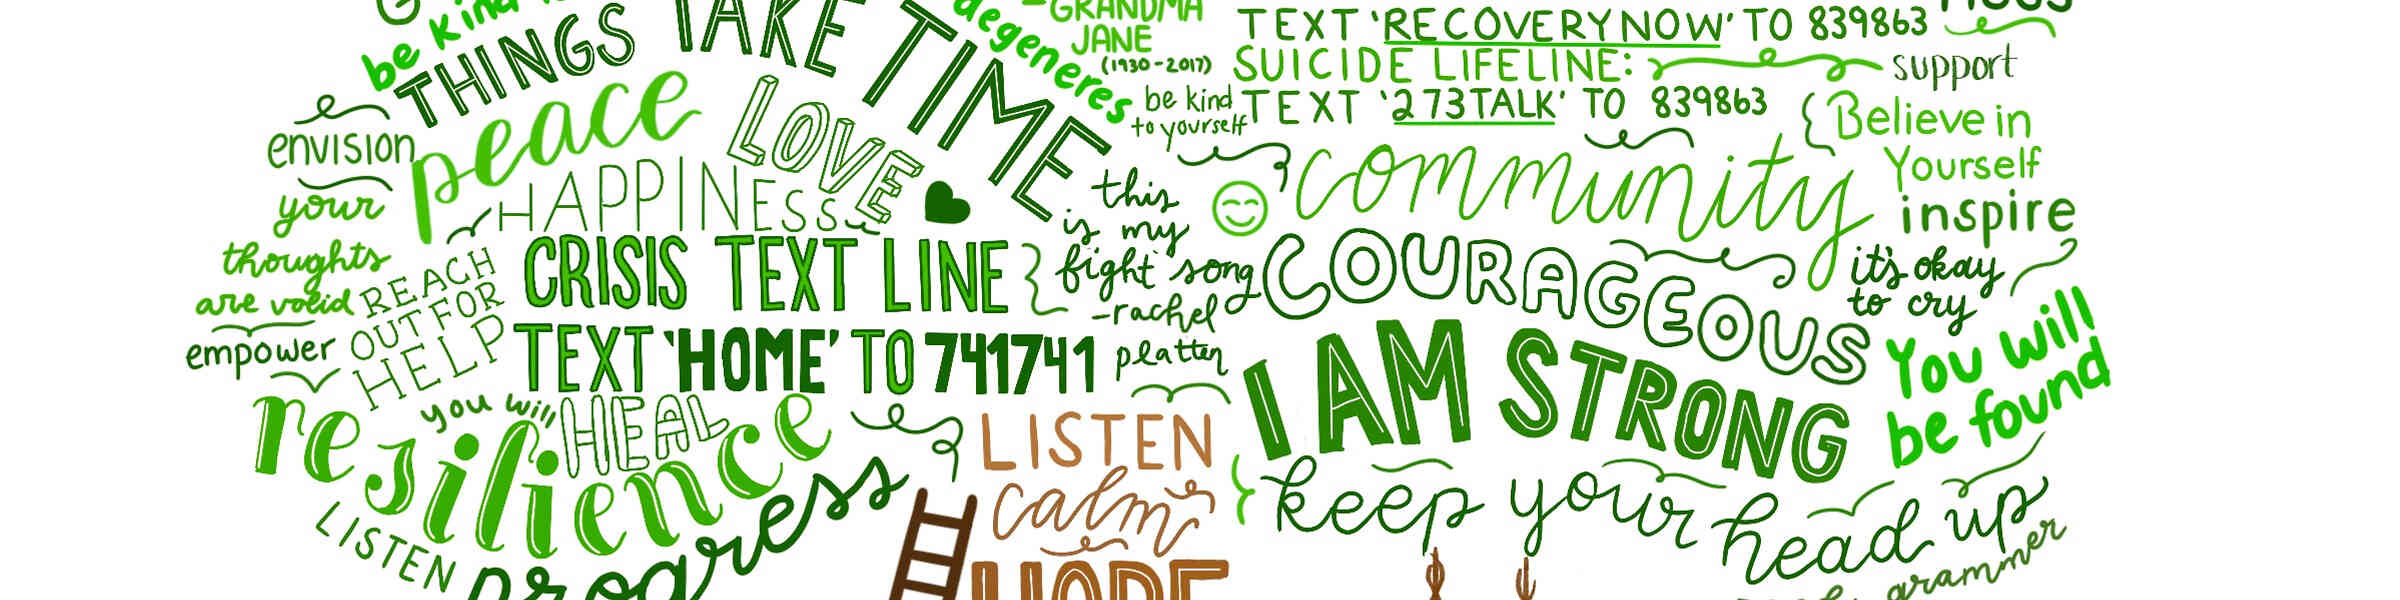 be kind
THINGS TAKE TIME
degeneres
-GRANDMA
JANE
(1930-2017)
be kind
to yourself
TEXT 'RECOVERYNOW' TO 839863
SUICIDE LIFELINE:
TEXT '273TALK' TO 839863
support
Believe in
Yourself
inspire
envision
your
thoughts
are valid
empower
peace
LOVE
HAPPINESS
REACH
OUT FOR
HELP
CRISIS TEXT LINE
TEXT 'HOME' TO 741741
this
is my
fight song
-rachel
platten
community
COURAGEOUS
it's okay
to cry
I AM STRONG
You will
be found
you will
HEAL
resilience
LISTEN
progress
LISTEN
calm
HOPE
keep your head up
grammer